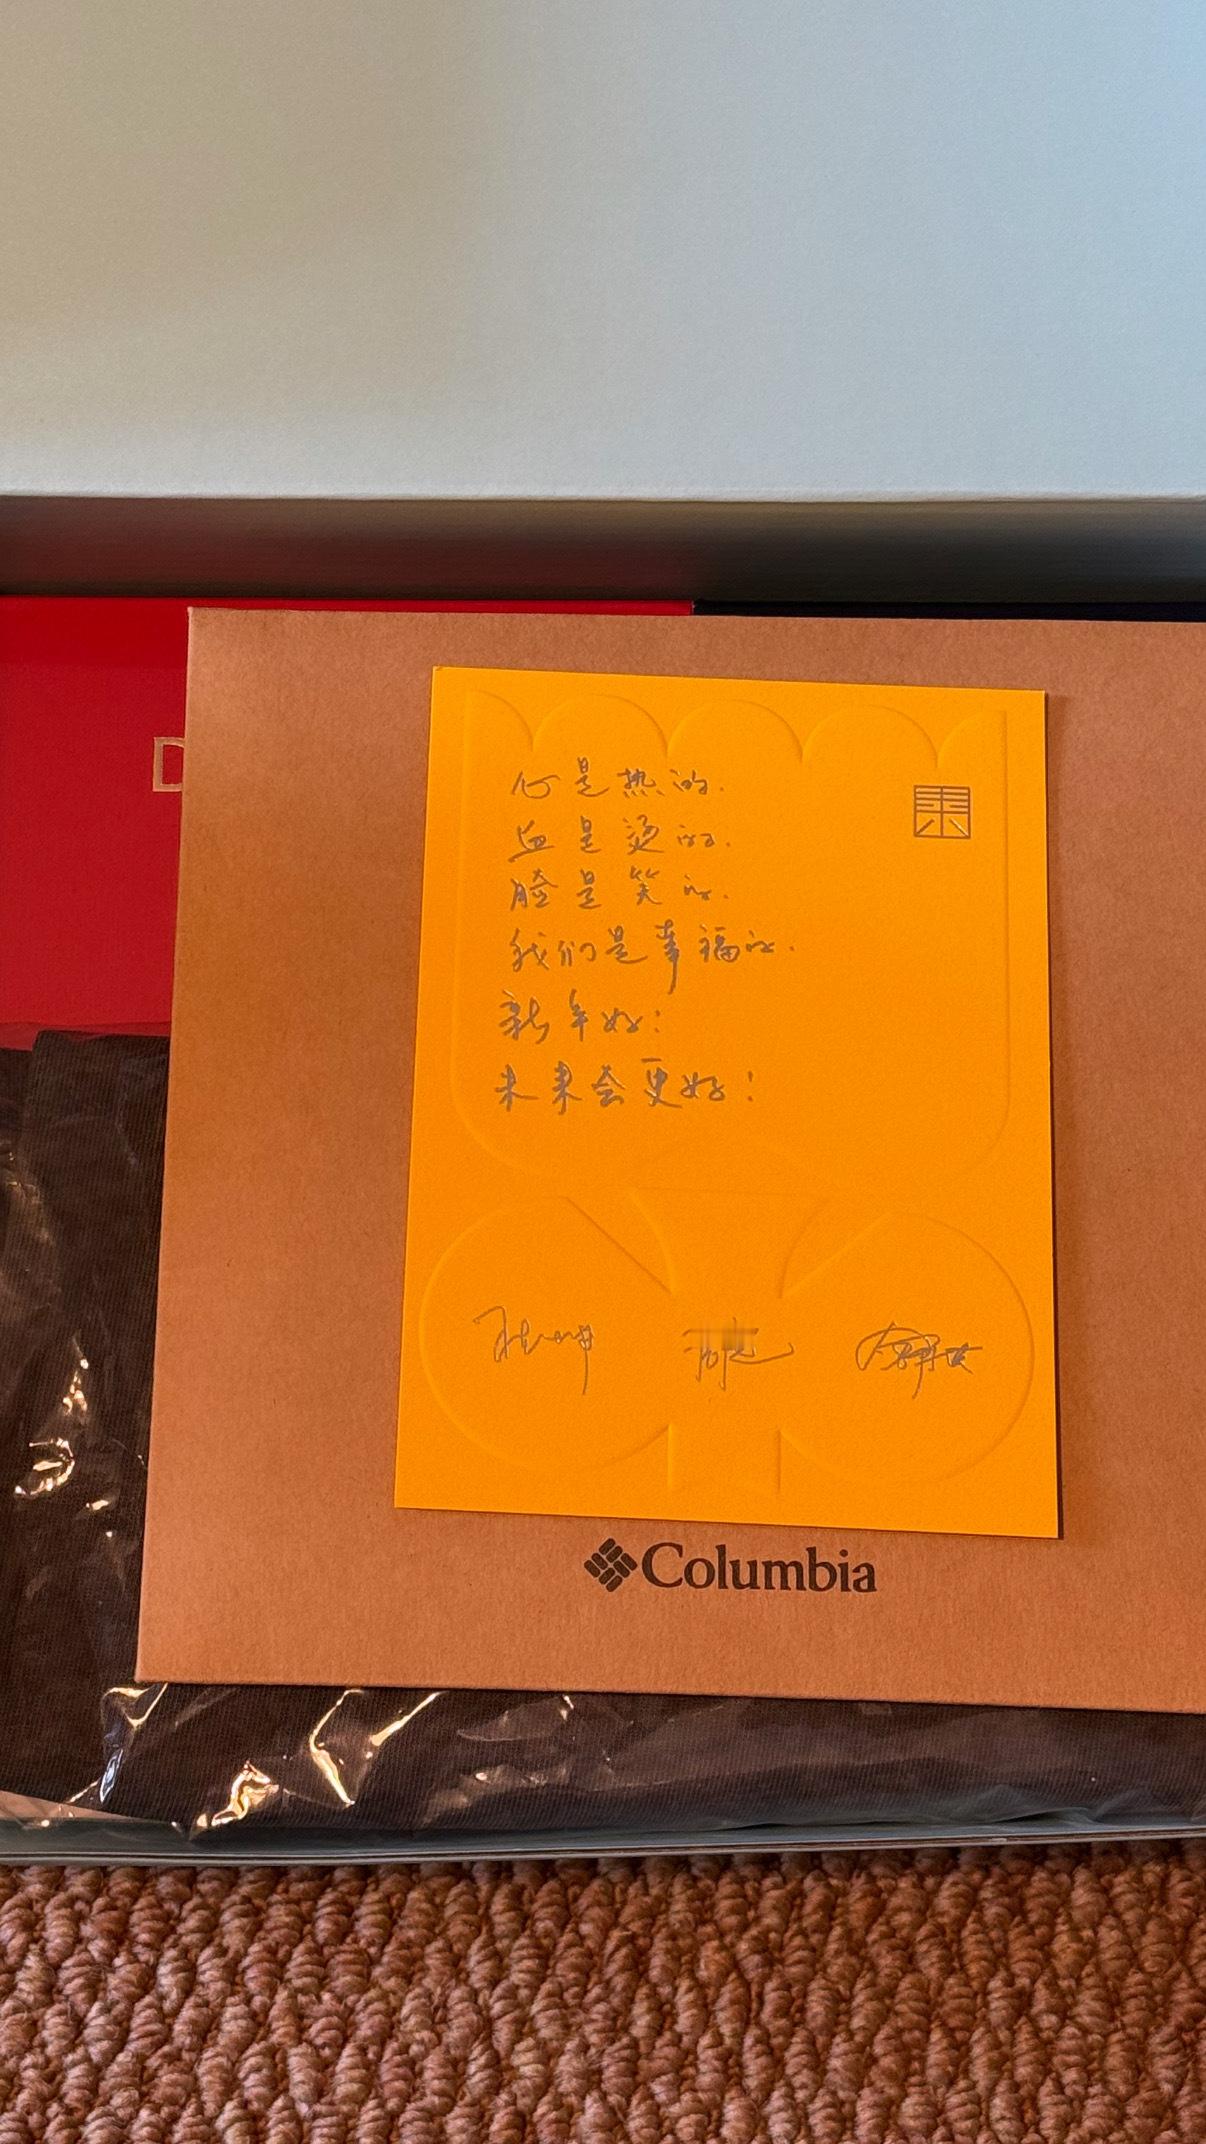 心是热的.
血是烫的.
脸是笑的.
我们是幸福的.
新年好!
未来会更好!
D
Columbia